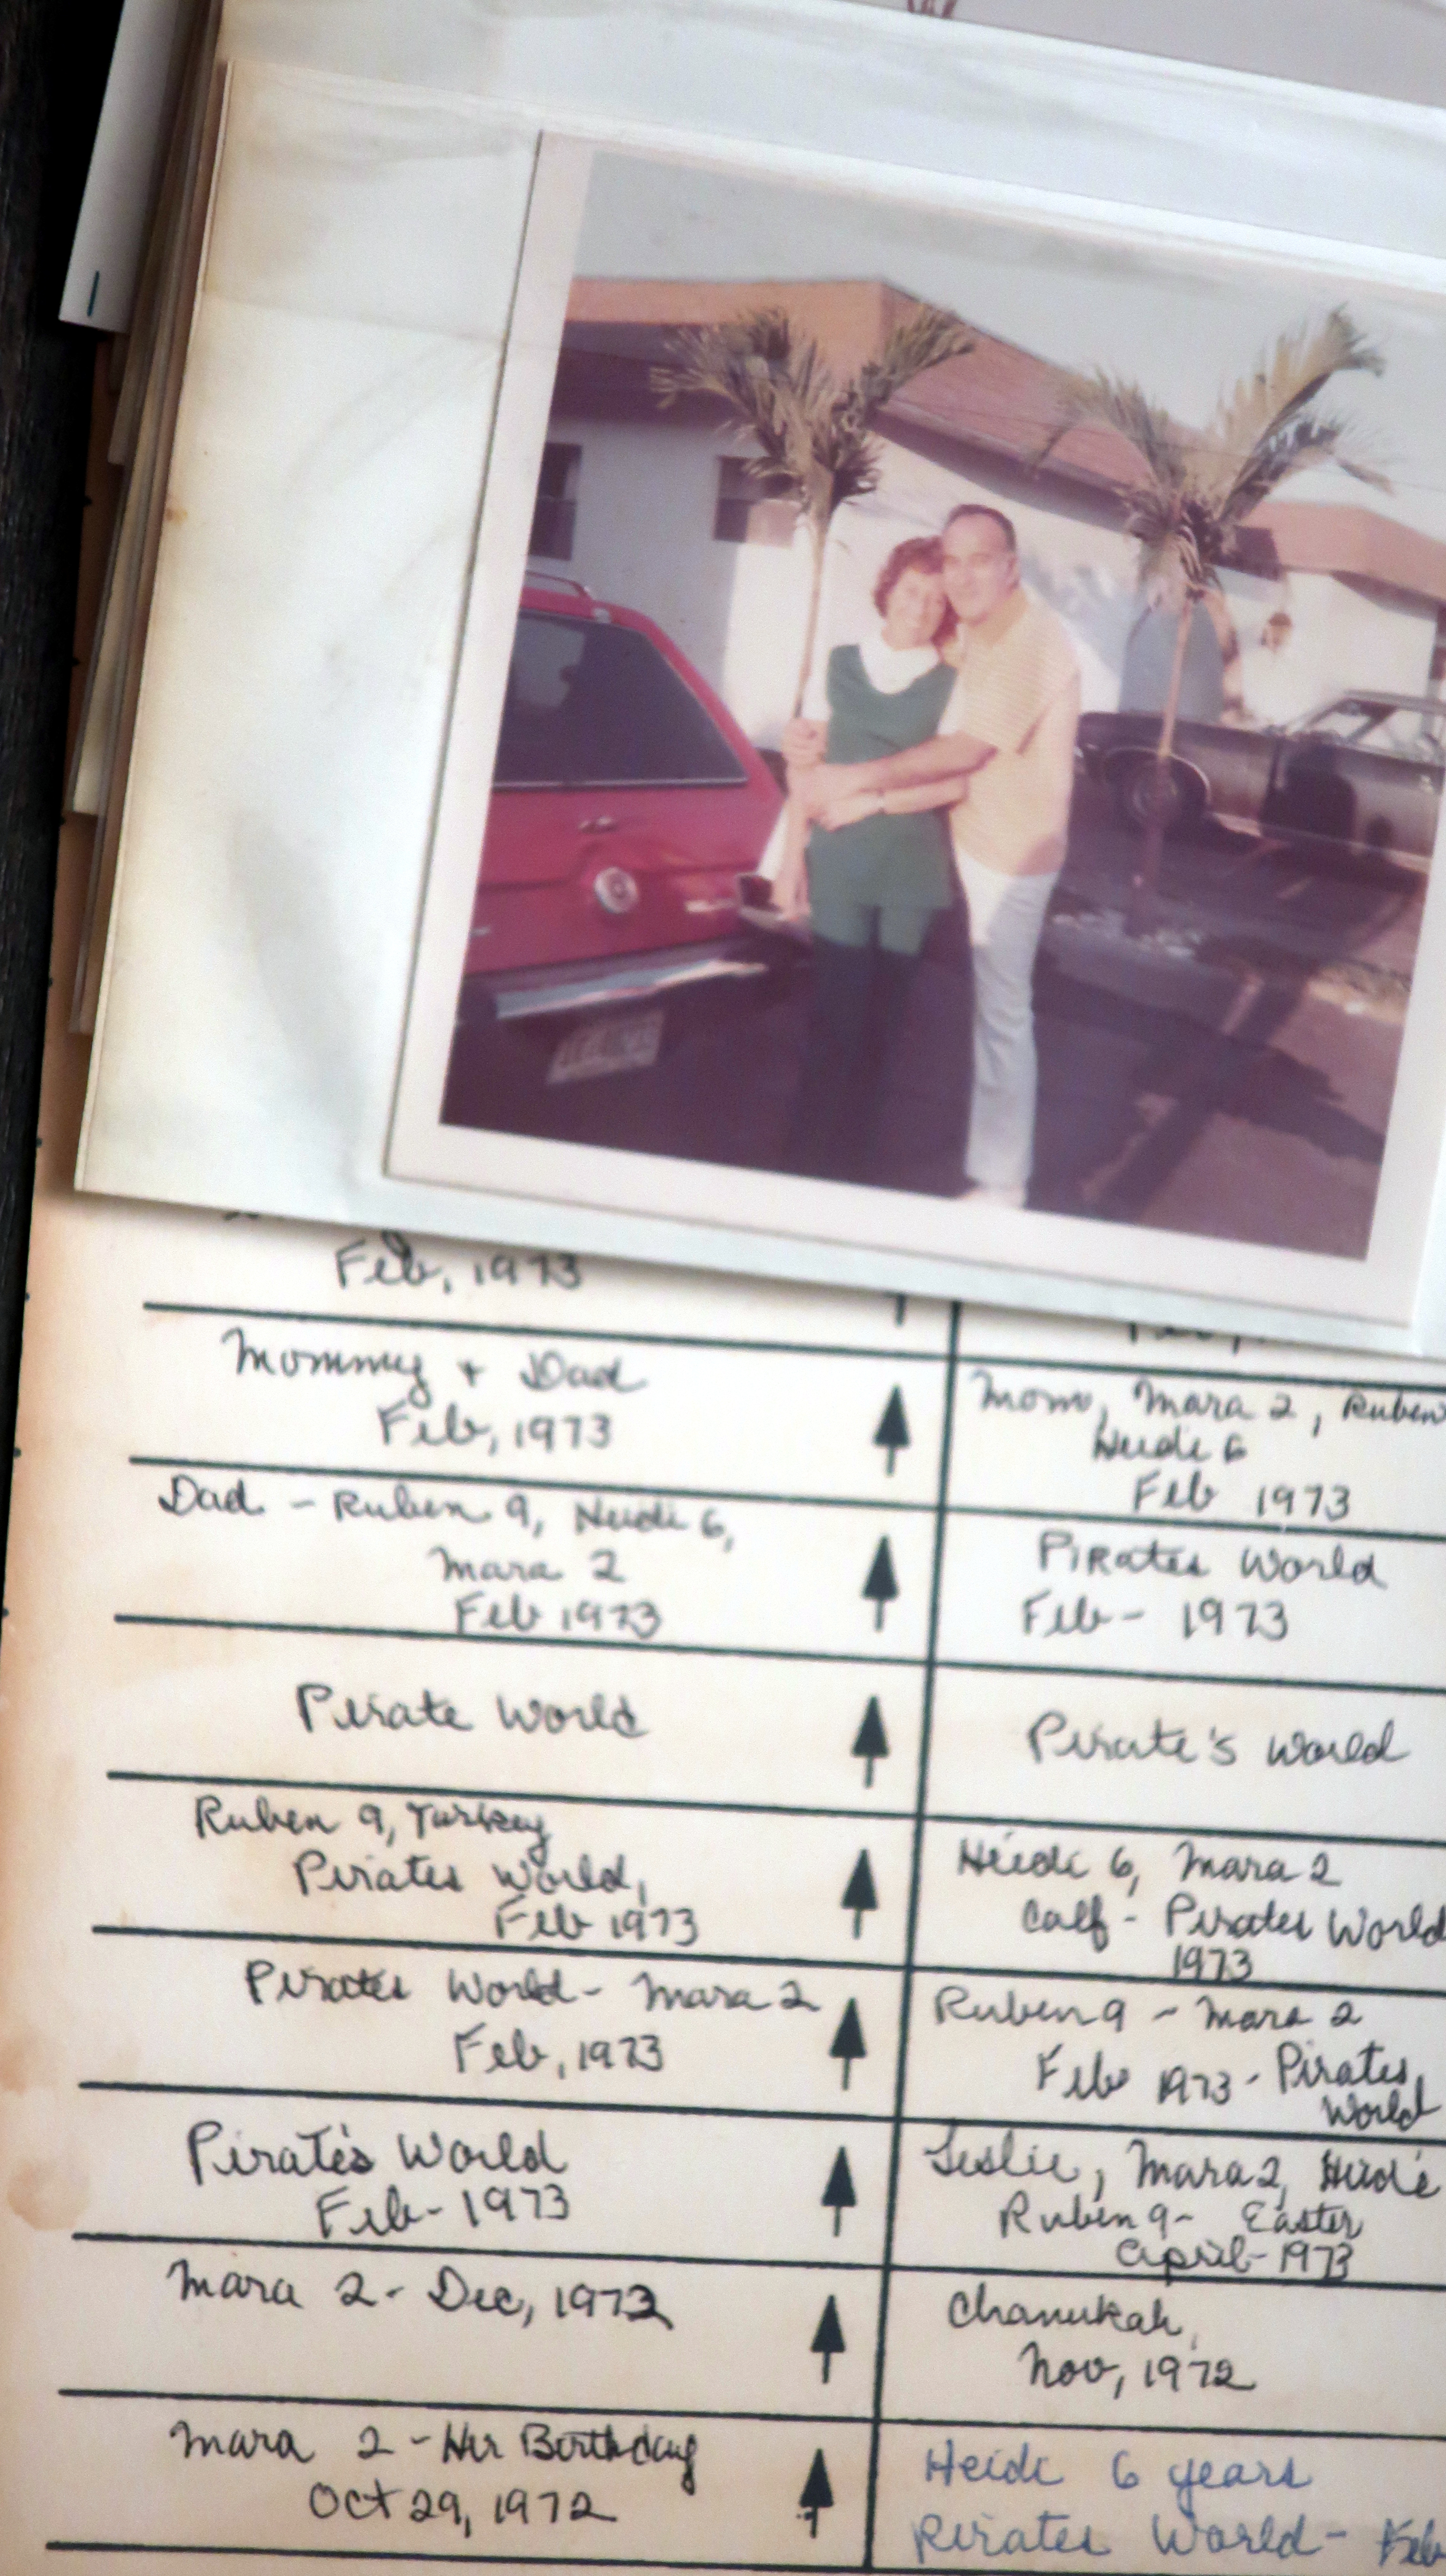 Feb, 1973
Mommy + Dad
Feb, 1973
Dad - Ruben 9, Heidi 6,
Mara 2
Feb 1973
Pirate World
Ruben 9, Turkey
Pirates World,
Feb 1973
Pirates World - Mara 2
Feb, 1973
Pirate's World
Feb - 1973
Mara 2 - Dec, 1972
Mara 2 - Her Birthday
Oct 29, 1972
Mom, Mara 2, Ruben
Heidi 6
Feb 1973
Pirates World
Feb - 1973
Pirate's World
Heidi 6, Mara 2
Calf - Pirates World
1973
Ruben 9 - Mara 2
Feb 1973 - Pirates
World
Leslie, Mara 2, Heidi
Ruben 9 - Easter
April - 1973
Chanukah,
Nov, 1972
Heidi 6 years
Pirates World - Feb